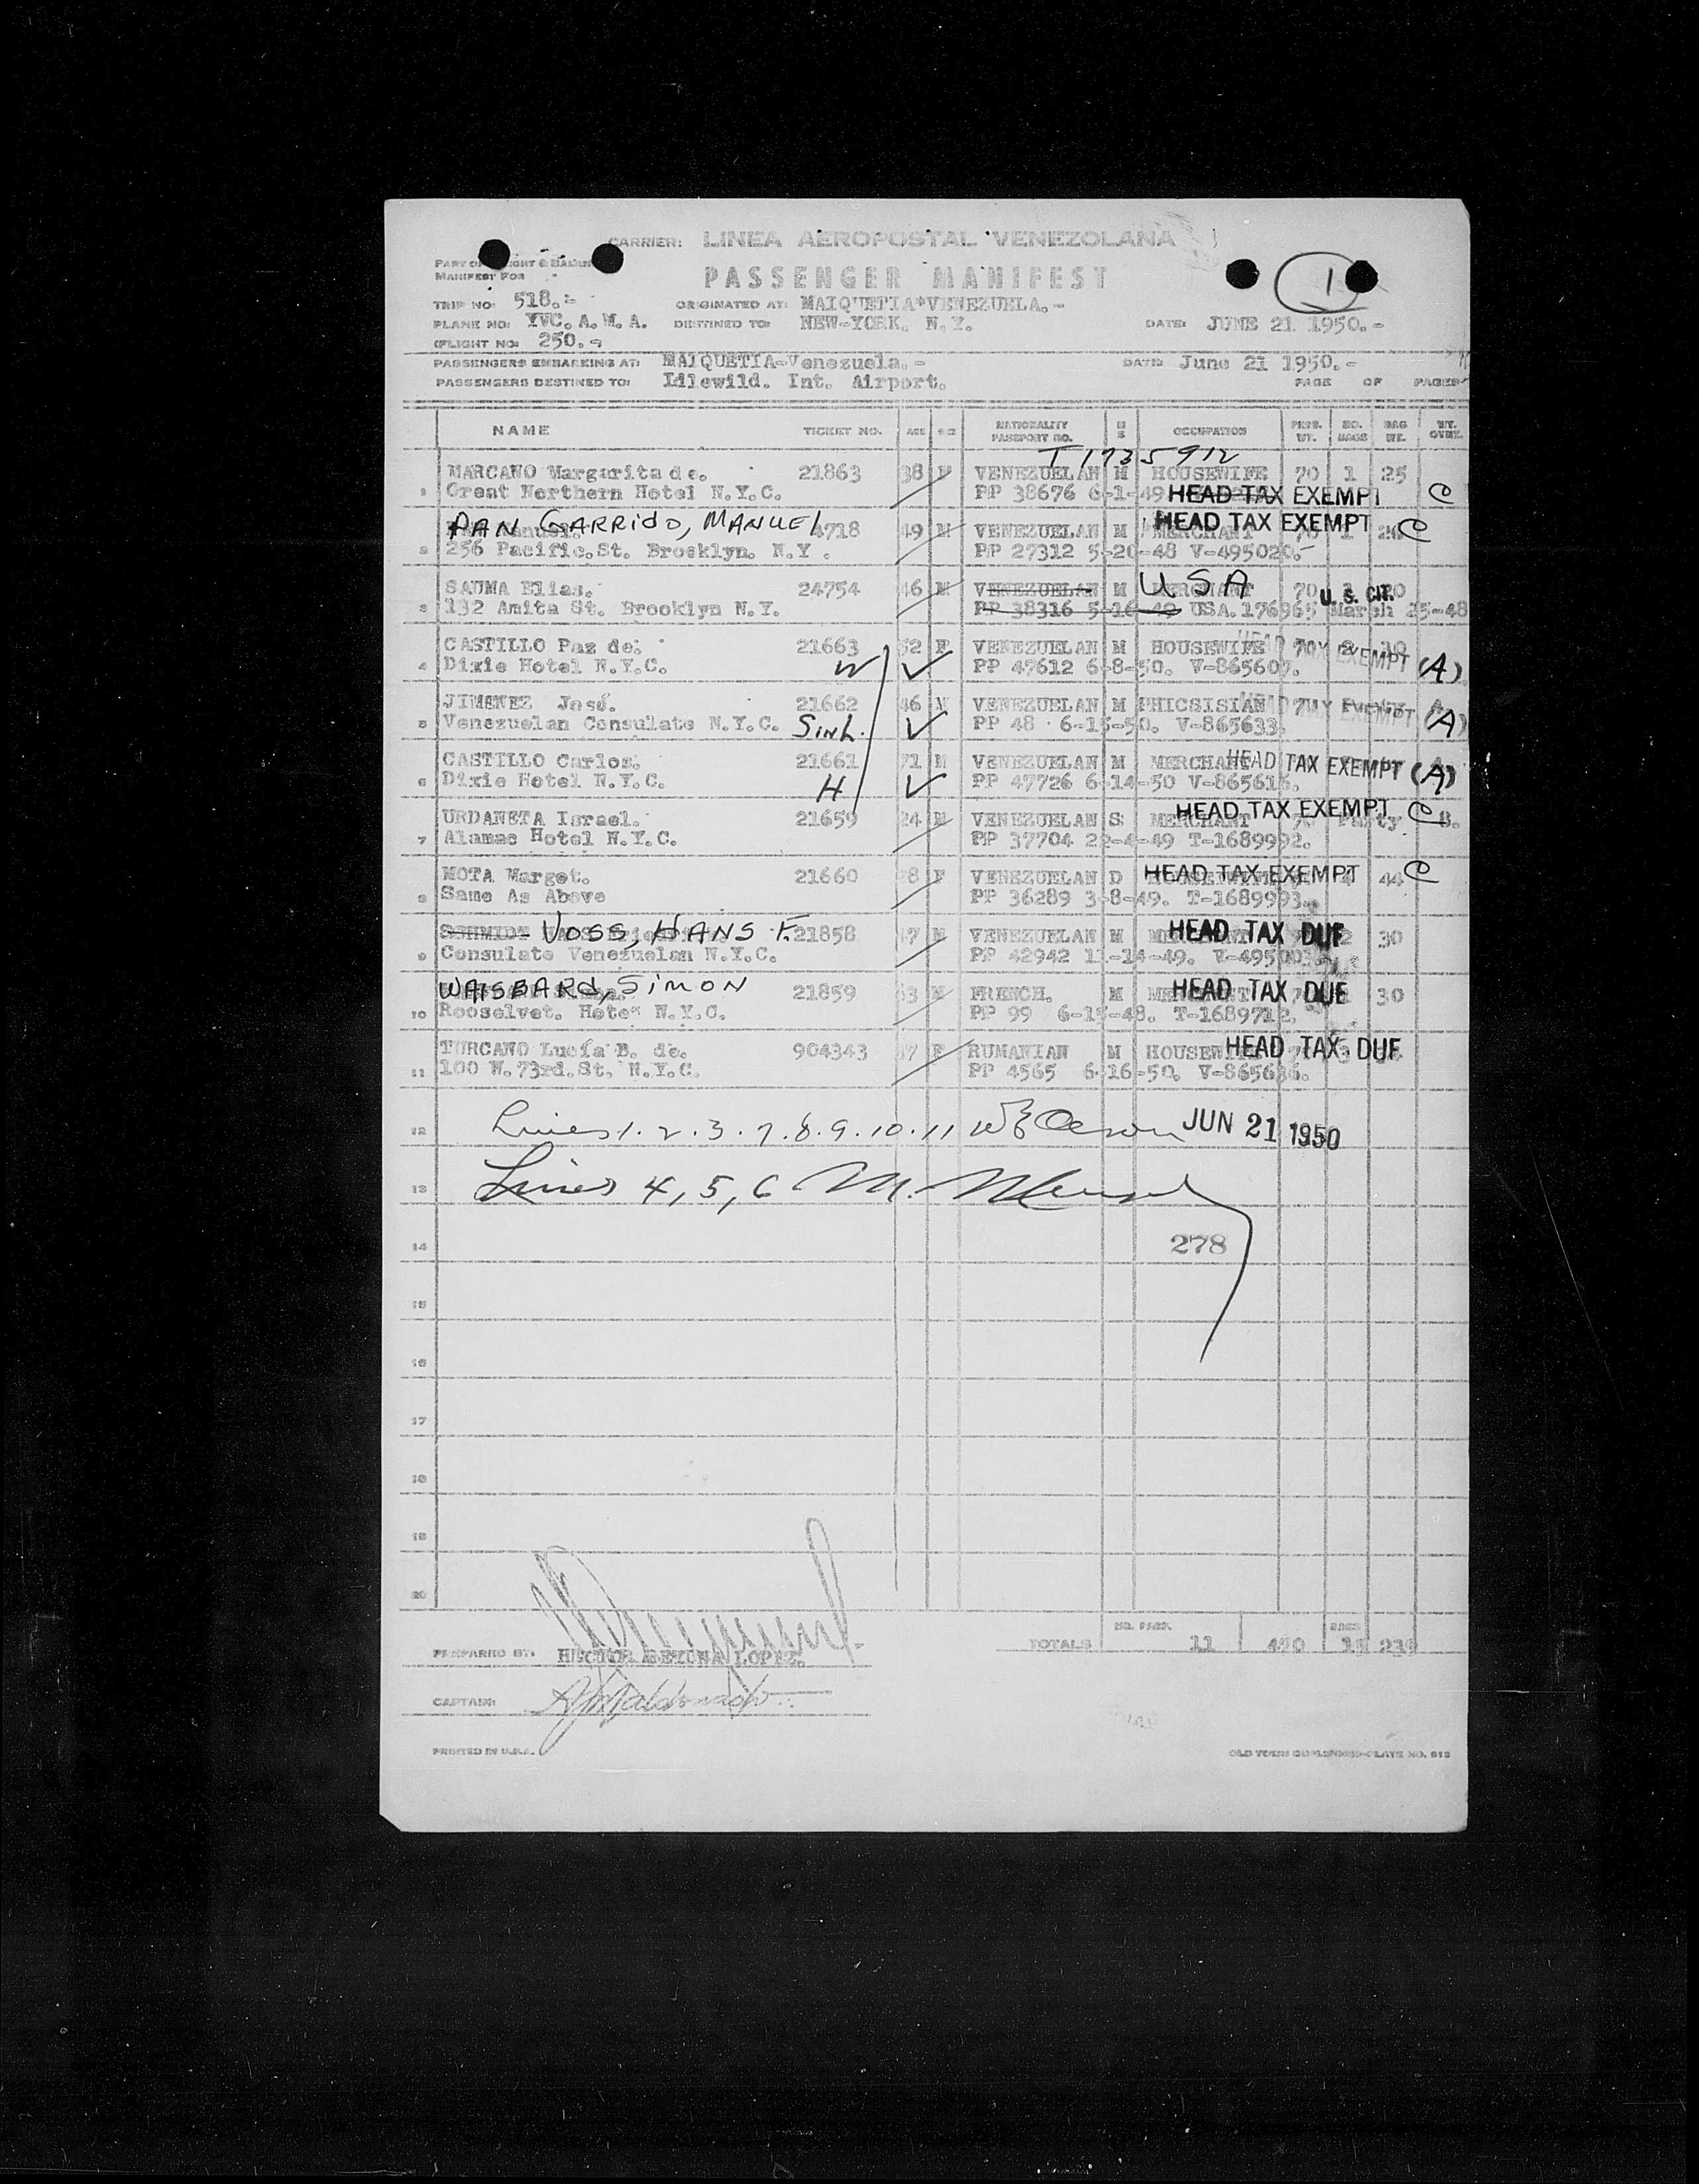 CARRIER: LINEA AEROPOSTAL VENEZOLANA
MANIFEST FOR
PASSENGER MANIFEST
1
TRIP NO: 518.-
ORIGINATED AT: MAIQUETIA*VENEZUELA.-
PLANE NO: YVC. A. M. A.
DESTINED TO: NEW-YORK. N.Y.
DATE: JUNE 21 1950.-
(FLIGHT NO: 250.-
PASSENGERS EMBARKING AT: MAIQUETIA-Venezuela.-
DATE: June 21 1950.-
PASSENGERS DESTINED TO: Idlewild. Int. Airport.
PAGE OF PAGES
NAME TICKET NO. AGE NATIONALITY PASSPORT NO. OCCUPATION PASS. WT. NO. BAGS BAG WT.
T 1735912
MARCANO Margarita de. 21863 38 F VENEZUELAN M HOUSEWIFE 70 1 25
1 Great Northern Hotel N.Y.C. PP 38676 6-1-49 HEAD TAX EXEMPT C
PAN GARRIDO, MANUEL 4718 49 M VENEZUELAN M MERCHANT HEAD TAX EXEMPT C
2 256 Pacific.St. Brooklyn. N.Y. PP 27312 5-20-48 V-495020.-
SAUMA Elias. 24754 46 M VENEZUELAN M MERCHANT USA 70 U. S. CIT.
3 132 Amita St. Brooklyn N.Y. PP 38316 5-16-49 USA.176965 March 25-48
CASTILLO Paz de. 21663 52 F VENEZUELAN M HOUSEWIFE HEAD TAX EXEMPT (A)
4 Dixie Hotel N.Y.C. W PP 47612 6-8-50. V-865607.
JIMENEZ José. 21662 46 M VENEZUELAN M PHICSISIAN HEAD TAX EXEMPT (A)
5 Venezuelan Consulate N.Y.C. SinL. PP 48 6-15-50. V-865633.
CASTILLO Carlos. 21661 71 M VENEZUELAN M MERCHANT HEAD TAX EXEMPT (A)
6 Dixie Hotel N.Y.C. H PP 47726 6-14-50 V-865616.
URDANETA Israel. 21659 24 M VENEZUELAN S MERCHANT HEAD TAX EXEMPT C
7 Alamac Hotel N.Y.C. PP 37704 22-4-49 T-1689992.
MOTA Marget. 21660 28 F VENEZUELAN D HEAD TAX EXEMPT 44 C
8 Same As Above PP 36289 3-8-49. T-1689993.
SCHMIDT VOSS, HANS F. 21858 47 M VENEZUELAN M HEAD TAX DUE 2 30
9 Consulate Venezuelan N.Y.C. PP 42942 11-14-49. V-495003.
WAISBARD, SIMON 21859 63 M FRENCH. M MERCHANT HEAD TAX DUE 30
10 Rooselvet. Hotel N.Y.C. PP 99 6-15-48. T-1689712.
TURCANO Lucía B. de. 904343 37 F RUMANIAN M HOUSEWIFE HEAD TAX DUE
11 100 W. 73rd.St. N.Y.C. PP 4565 6-16-50. V-865636.
12 Lines 1.2.3.7.8.9.10.11 JUN 21 1950
13 Lines 4, 5, 6 M.
14 278
15
16
17
18
19
20
NO. PASS. BAGS
TOTALS 11 15 239
PREPARED BY: LOPEZ.
CAPTAIN:
PRINTED IN U.S.A.
PLATE NO. 515